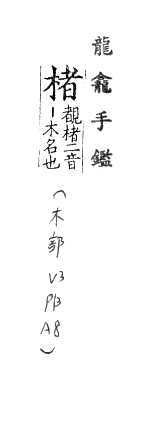 龍龕手鑑
楮
覩楮二音
ー木名也
(木部 V3 P13 A8)